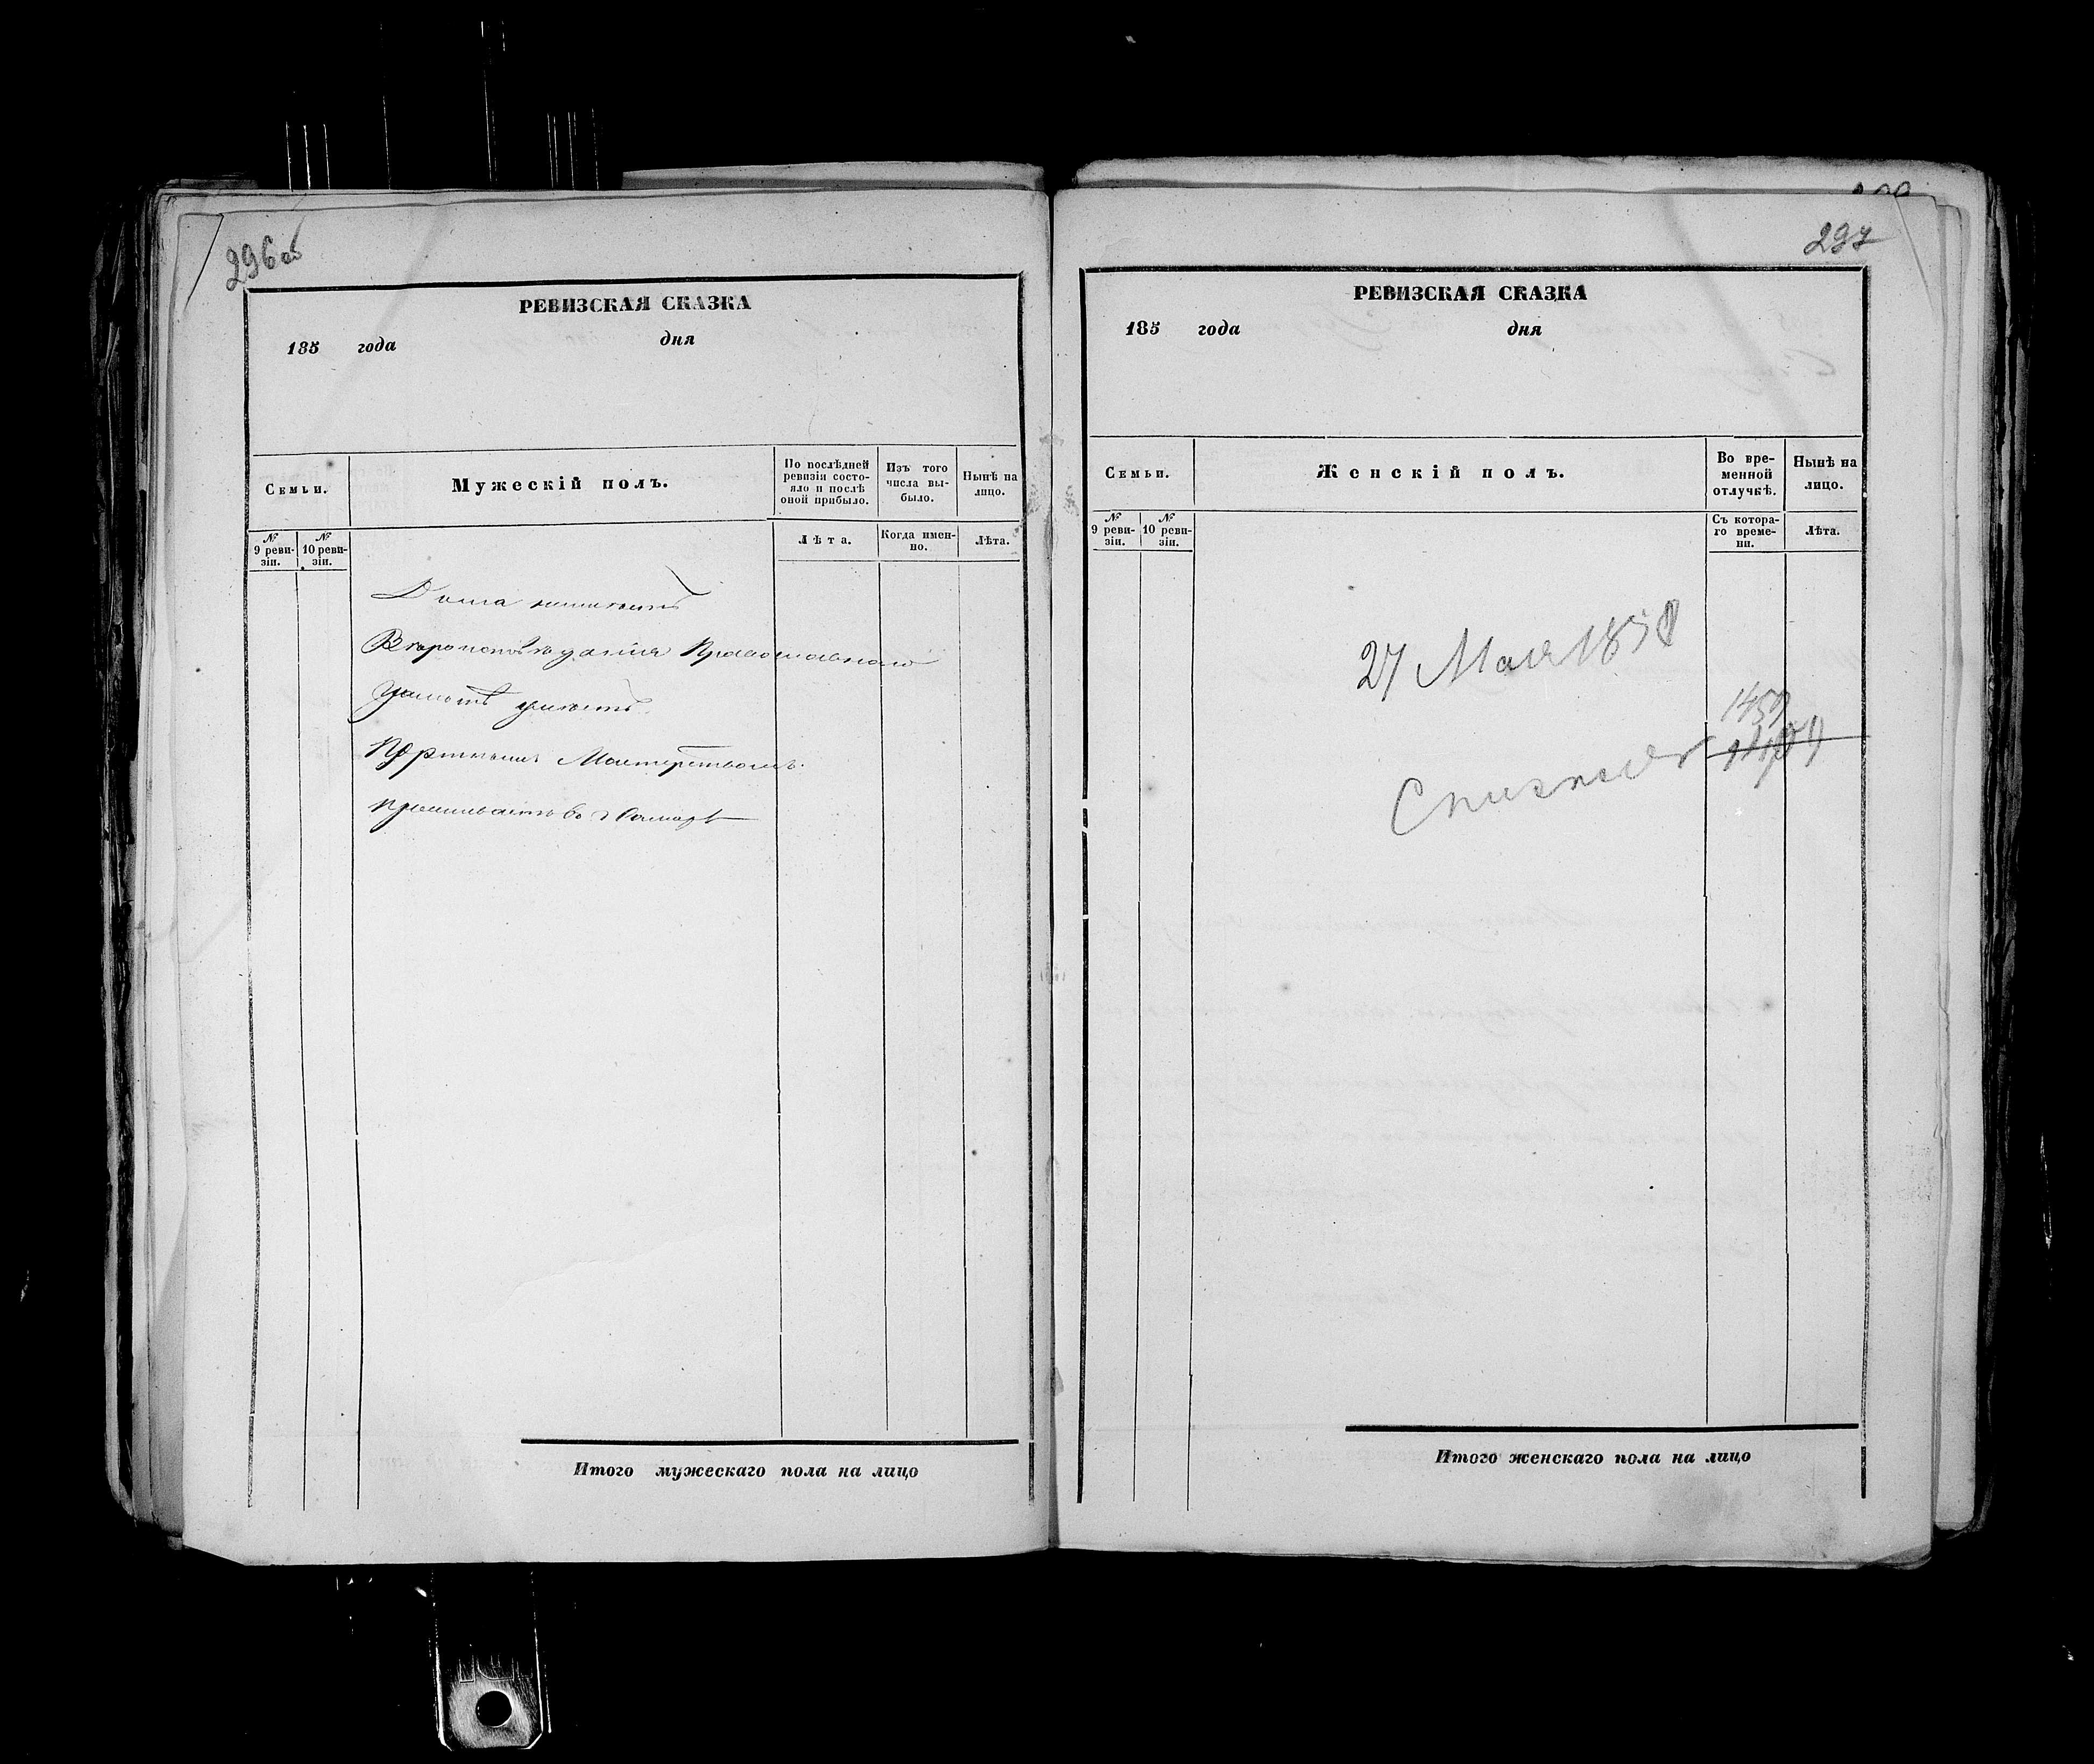 296об
РЕВИЗСКАЯ СКАЗКА
185 года дня
Семьи.
Мужескій полъ.
По послѣдней ревизіи состояло и послѣ оной прибыло.
Изъ того числа выбыло.
Нынѣ на лицо.
№ 9 ревизіи.
№ 10 ревизіи.
Лѣта.
Когда именно.
Лѣта.
Дома неимѣетъ
Вѣроисповѣданія Православнаго
Грамотѣ умѣетъ
Портнымъ Мастерствомъ.
Проживаетъ во г Самарѣ
Итого мужескаго пола на лицо
297
РЕВИЗСКАЯ СКАЗКА
185 года дня
Семьи.
Женскій полъ.
Во временной отлучкѣ.
Нынѣ на лицо.
№ 9 ревизіи.
№ 10 ревизіи.
Съ котораго времени.
Лѣта.
27 Мая 1858
1459
Итого женскаго пола на лицо